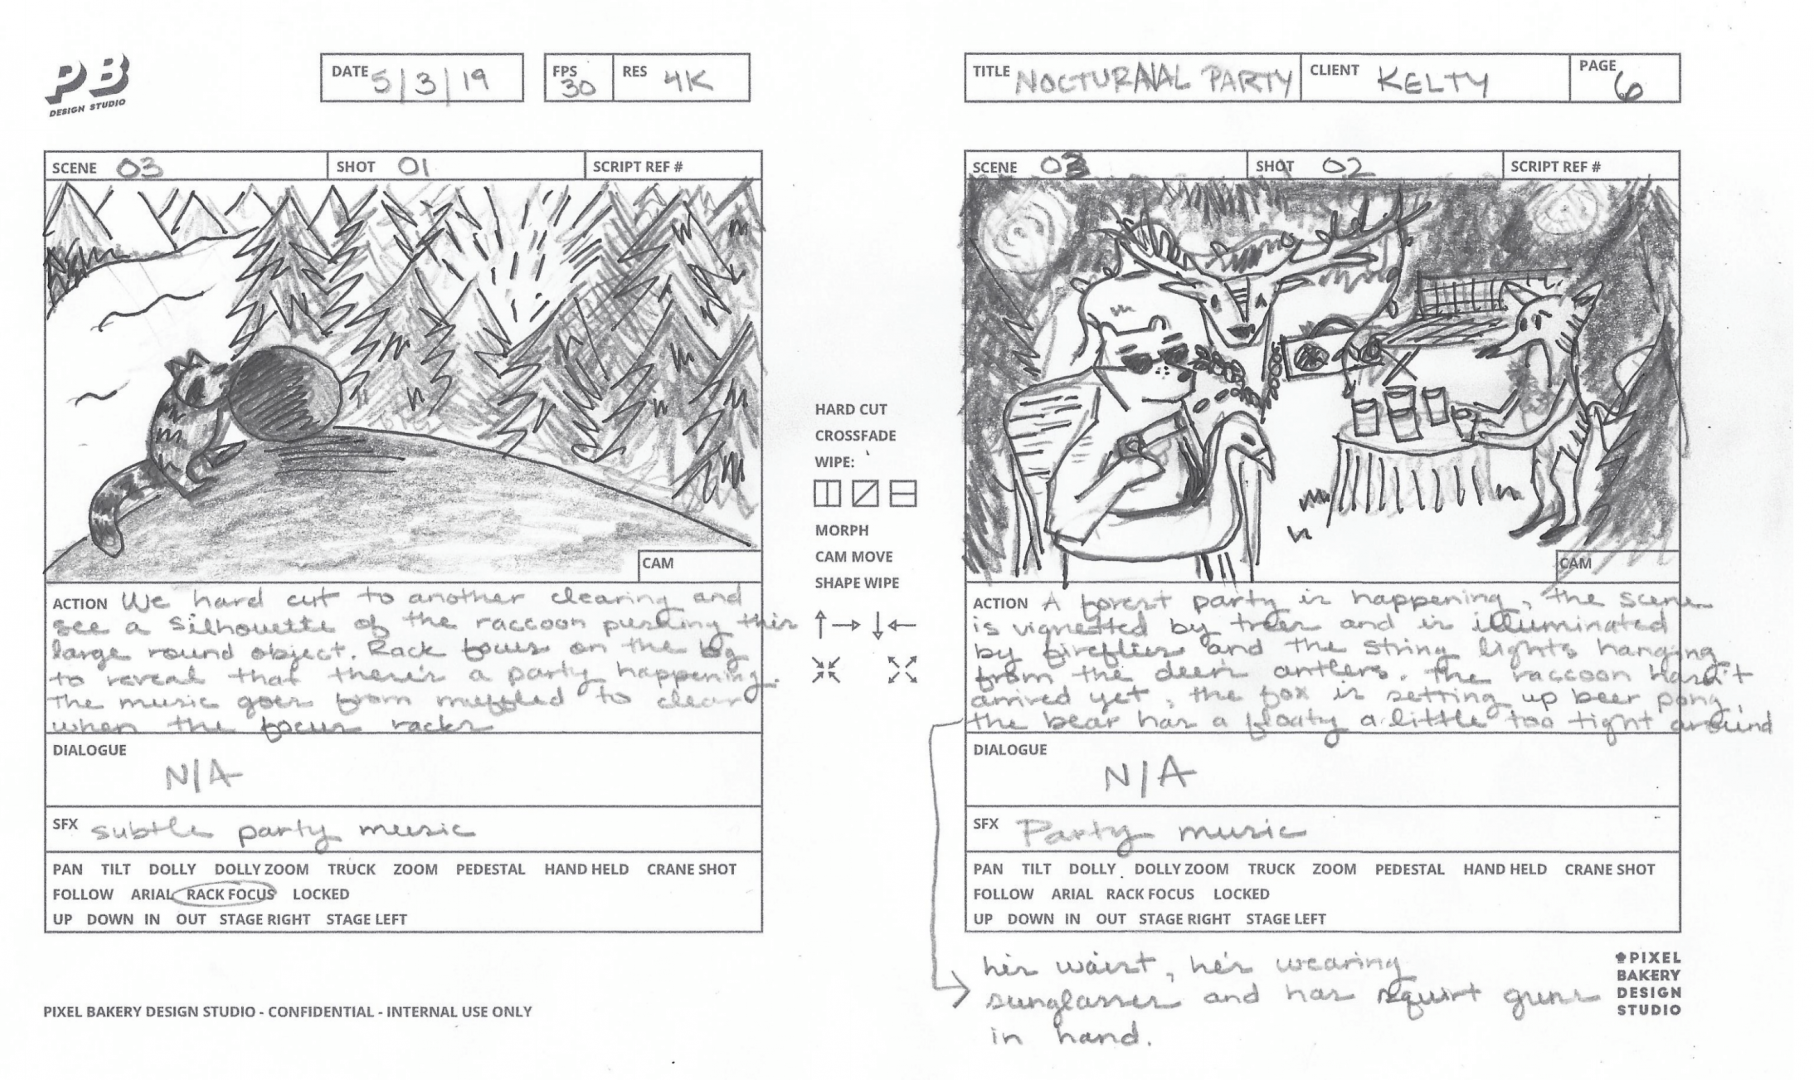 PB
DESIGN STUDIO
DATE 5/3/19
FPS 30
RES 4K
TITLE NOCTURNAL PARTY
CLIENT KELTY
PAGE 6
SCENE 03
SHOT 01
SCRIPT REF #
CAM
ACTION We hard cut to another clearing and
see a silhouette of the raccoon pushing this
large round object. Rack focus on the bg
to reveal that there's a party happening.
The music goes from muffled to clear
when the focus racks
DIALOGUE
N/A
SFX subtle party music
PAN TILT DOLLY DOLLY ZOOM TRUCK ZOOM PEDESTAL HAND HELD CRANE SHOT
FOLLOW ARIAL RACK FOCUS LOCKED
UP DOWN IN OUT STAGE RIGHT STAGE LEFT
HARD CUT
CROSSFADE
WIPE:
MORPH
CAM MOVE
SHAPE WIPE
SCENE 03
SHOT 02
SCRIPT REF #
CAM
ACTION A forest party is happening, the scene
is vignetted by trees and is illuminated
by fireflies and the string lights hanging
from the deer antlers. The raccoon hasn't
arrived yet, the fox is setting up beer pong,
the bear has a floaty a little too tight around
DIALOGUE
N/A
SFX Party music
PAN TILT DOLLY DOLLY ZOOM TRUCK ZOOM PEDESTAL HAND HELD CRANE SHOT
FOLLOW ARIAL RACK FOCUS LOCKED
UP DOWN IN OUT STAGE RIGHT STAGE LEFT
his waist, he's wearing
sunglasses and has squirt guns
in hand.
PIXEL BAKERY DESIGN STUDIO - CONFIDENTIAL - INTERNAL USE ONLY
PIXEL
BAKERY
DESIGN
STUDIO